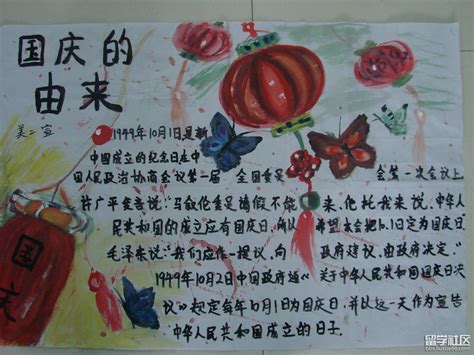 国庆的
由来
美二宣
1949年10月1日是新
中国成立的纪念日在中
国人民政治协商会议第一届 全国委员 会第一次会议上
许广平发言说:"马叙伦委员请假不能 来,他托我来说,中华人
民共和国的成立应有国庆日,所以 希望本会把10.1日定为国庆日
毛泽东说:"我们应作一提议,向 政府建议,由政府决定."
1949年10月2日中国政府通 《关于中华人民共和国国庆日决
议》规定每年10月1日为国庆日,并以这一天作为宣告
中华人民共和国成立的日子.
国庆
留学社区
bbs.liuxue86.com